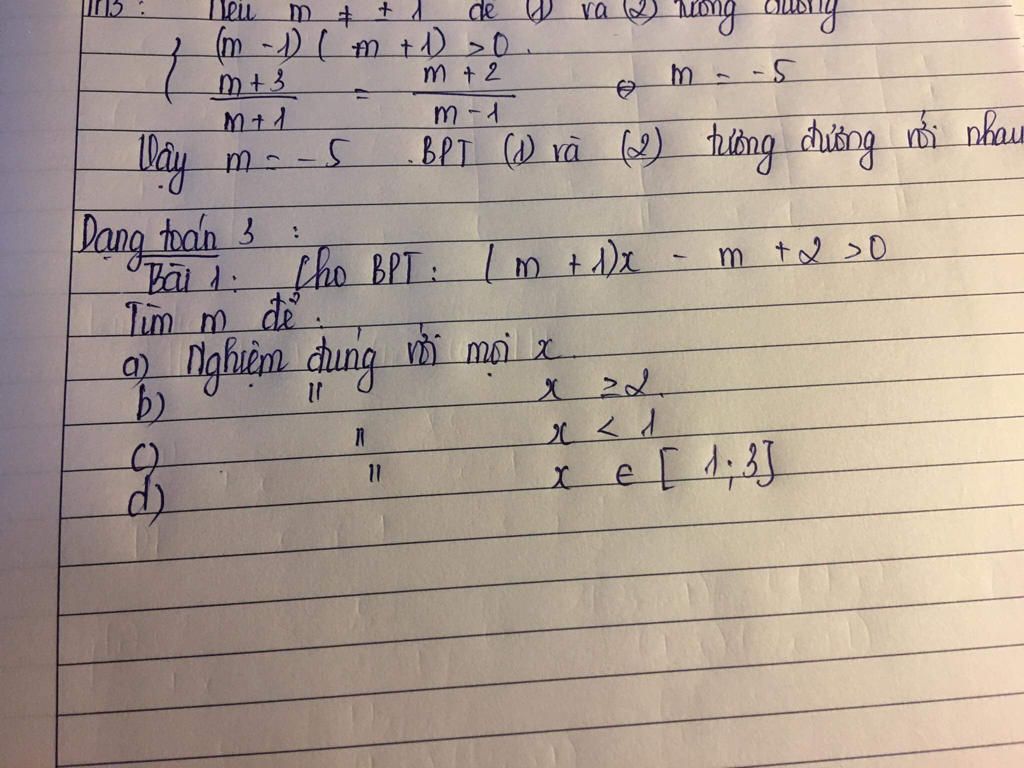 Nếu m ≠ ± 1 để (1) và (2) tương đương
{ (m - 1) ( m + 1) > 0.
m + 3 / m + 1 = m + 2 / m - 1 ⇔ m = -5
Vậy m = -5 .BPT (1) và (2) tương đương với nhau
Dạng toán 3 :
Bài 1: Cho BPT: (m + 1)x - m + 2 > 0
Tìm m để :
a) Nghiệm đúng với mọi x.
b) " x ≥ 2.
c) " x < 1
d) " x ∈ [ 1; 3]